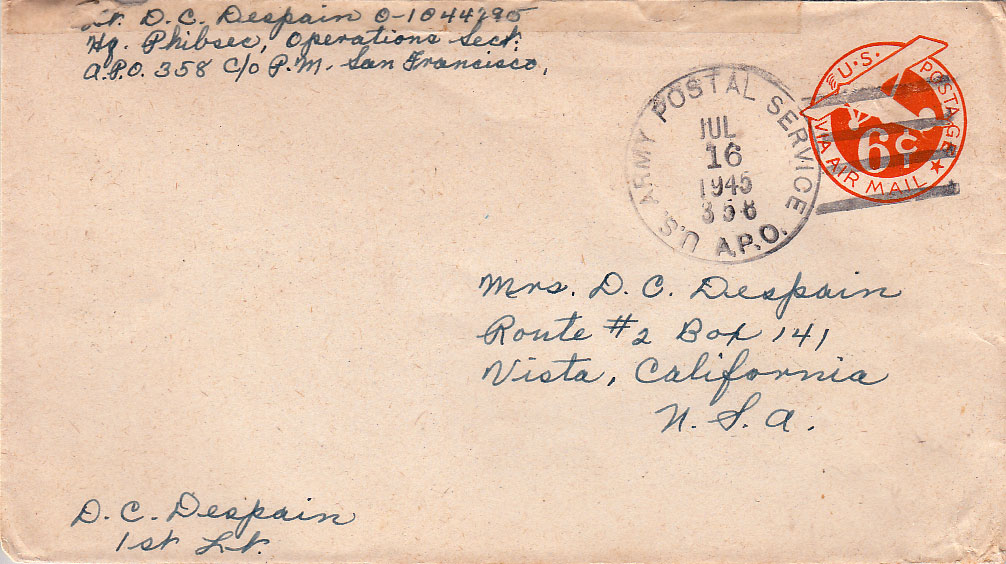 Lt. D. C. Despain O-1044295
Hq. Phibsec, Operations Sect.
A.P.O. 358 c/o P.M. San Francisco,
U.S. ARMY POSTAL SERVICE
JUL
16
1945
358
A.P.O.
U.S. POSTAGE
6¢
VIA AIR MAIL
Mrs. D. C. Despain
Route #2 Box 141
Vista, California
U. S. A.
D. C. Despain
1st Lt.